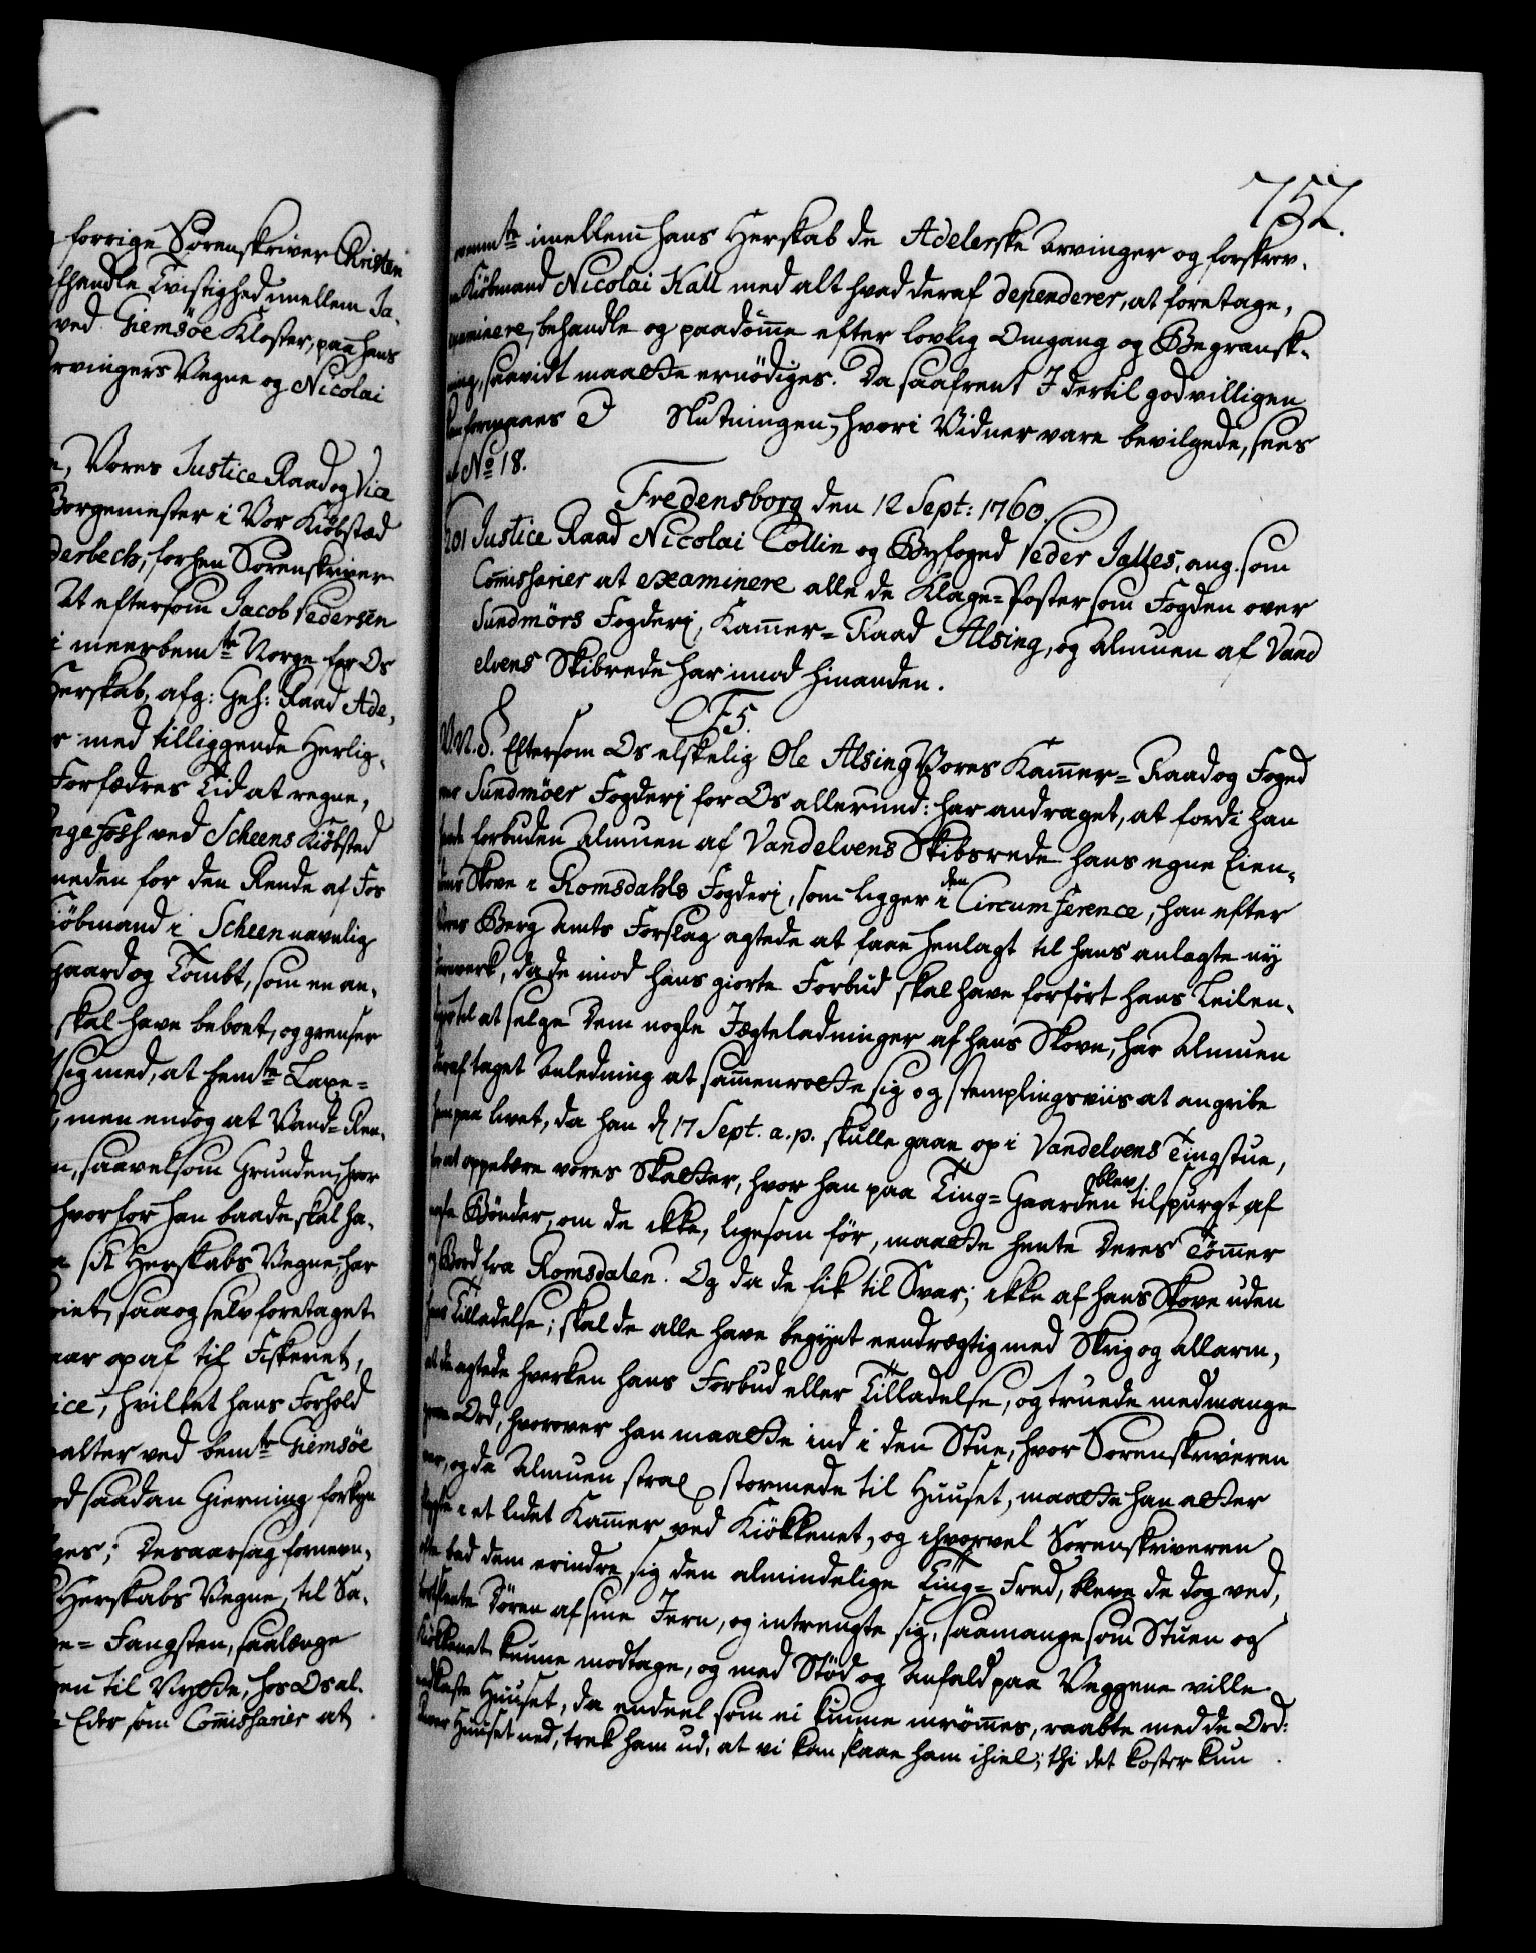 forrige Sorenskriver Christen
afhandle Tvistighed imellem Ja-
ved Giemsöe Kloster, paa hans
Arvingers Vegne og Nicolai
Vores Justice Raad og Vice
Borgemester i Vor Kiöbstæd
derbech, forhen Sorenskriver
At eftersom Jacob Pedersen
i meerbemte Norge for Os
Herskab, afg: Geh: Raad Ade-
med tilliggende Herlig-
Forfædres Tid at regne,
Fossh ved Scheens Kiöbsted
neden for den Rende af Fos
Kiöbmand i Scheen navnlig
Gaard og Tombt, som en an-
skal have beboet, og grenser
sig med, at bemte Laxe-
men endog at Vand-Ren-
saavelsom Grunden, hvor
hvorfor han baade skal ha-
sit Herskabs Vegne, har
saa og selv foretaget
op af til Fiskeriet,
hvilket hans Forhold
valter ved bemte Giemsöe
saadan Gierning forkyn
Desaarsag fornevn-
Herskabs Vegne, til La-
Fangsten, saalænge
til Nytte, hos Os al-
Eder som Commissharier at
757.
nevnte imellem hans Herskab de Adelerske Arvinger og forskrev-
Kiöbmand Nicolai Kall med alt hvad deraf dependerer, at foretage,
examinere, behandle og paadömme efter lovlig Omgang og Begransk-
ning, saavidt maatte ernödiges. Da saafremt I dertil godvilligen
kan formaaes Slutningen, hvori Vidner vare bevilgede, sees
af No 18.
Fredensborg den 12 Sept: 1760.
201 Justice Raad Nicolai Collin og Byfoged Peder Jalles, ang. som
Commissharier at examinere alle de Klage-Poster som Fogden over
Sundmörs Fogderi, Kammer-Raad Alsing, og Almuen af Vand
elvens Skibrede har imod hinanden.
F5.
Eftersom Os elskelig Ole Alsing Vores Kammer-Raad og Foged
over Sundmöer Fogderi for Os allerund: har andraget, at fordi han
havde forbuden Almuen af Vandelvens Skibsrede hans egne Eien-
doms Skove i Romsdahls Fogderi, som ligger i den Circumference, han efter
Vores Berg Amts Forslag agtede at faae henlagt til hans anlagte ny
Jernverk, da de imod hans giorte Forbud skal have forfört hans Leilen-
dinger til at selge Dem nogle Jægteladninger af hans Skove, har Almuen
deraf taget Anledning at sammenrotte sig og stemplingsviis at angribe
ham paa livet, da han d 17 Sept. a. p. skulle gaae op i Vandelvens Tingstue,
for at oppebære vores Skatter, hvor han paa Ting-Gaarden blev tilspurgt af
Bönder, om de ikke, ligesom för, maatte hente Deres Tömmer
og Bord fra Romsdalen. Og da de fik til Svar; ikke af hans Skove uden
hans Tilladelse; skal de alle have begynt eendrægtig med Skrig og Allarm,
at de agtede hverken hans Forbud eller Tilladelse, og truede med mange
Ord, hvorover han maatte ind i den Stue, hvor Sorenskriveren
var, og da Almuen strax stormede til Huuset, maatte han atter
i et lidet Kammer ved Kiökkenet, og ihvorvel Sorenskriveren
bad dem erindre sig den almindelige Ting-Fred, bleve de dog ved,
Dören af sine Jern, og intrengte sig, saamange som Stuen og
Kiökkenet kunne modtage, og med Stöd og Anfald paa Veggene ville
nedkaste Huuset, da endeel som ei kunne inrömmes, raabte med de Ord:
Huuset ned, trek ham ud, at vi kan slaae ham ihiel; thi det koster kun